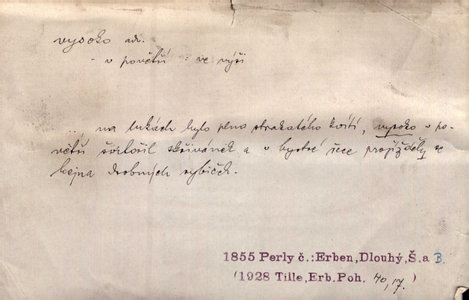 vysoko adv.
- v povětří : ve výši
... na lukách bylo plno strakatého kvítí, vysoko v po-
větří švitořil skřivánek a v bystré řece projížděly se
hejna drobných rybiček.
1855 Perly č.:Erben,Dlouhý,Š.a B.
(1928 Tille,Erb.Poh. 40,17.)